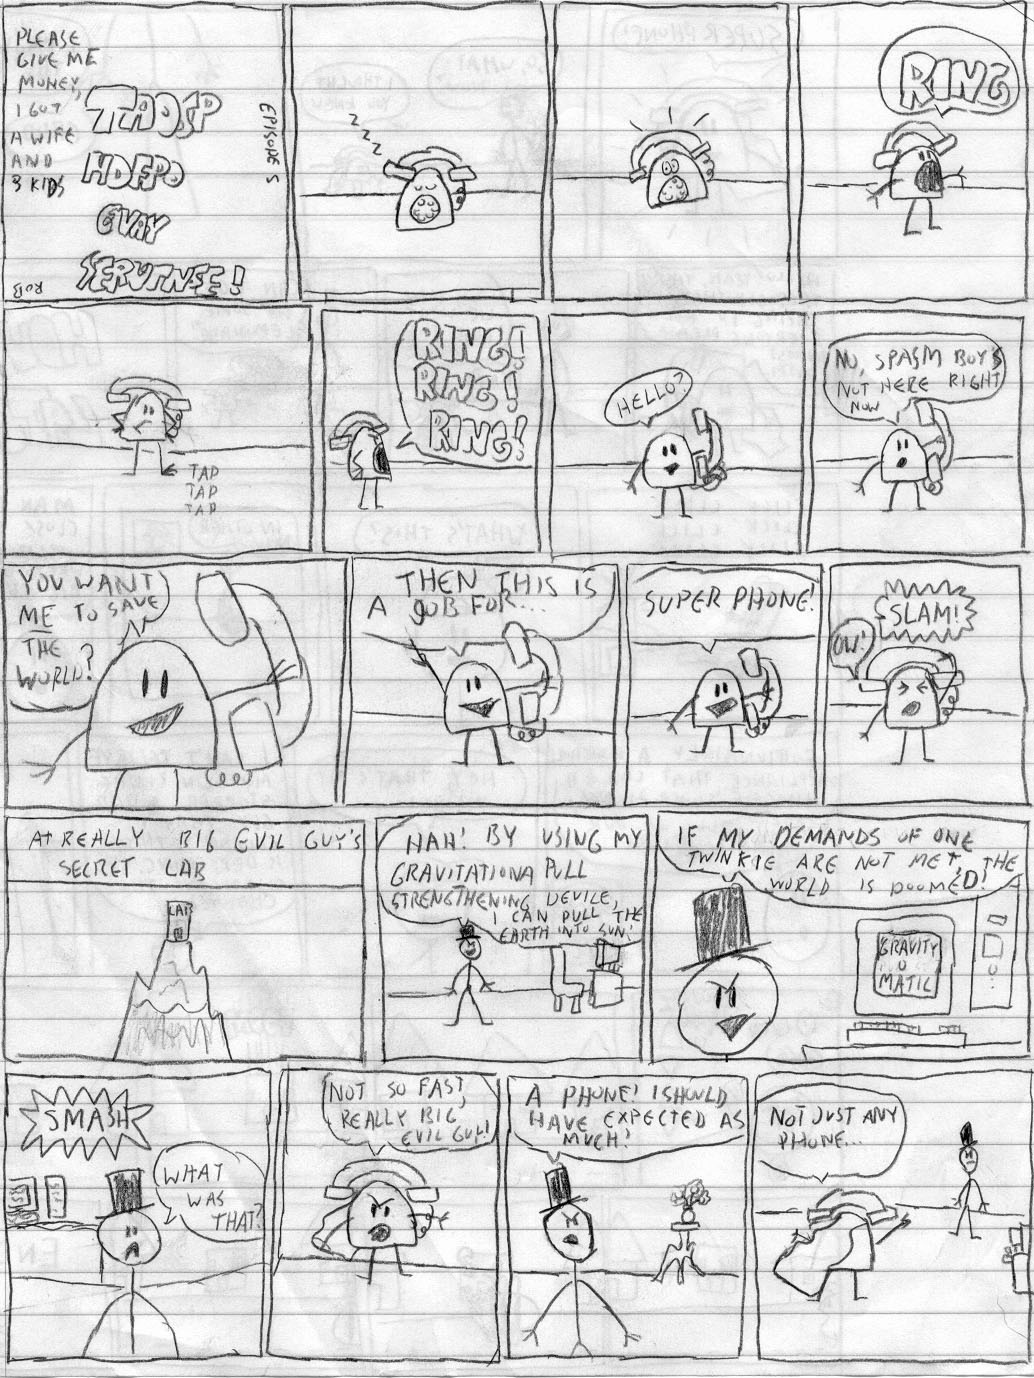 PLEASE
GIVE ME
MONEY,
I GOT
A WIFE
AND
3 KIDS
EPISODE 5
ROB
Z
Z
Z
RING
TAP
TAP
TAP
RING!
RING!
RING!
HELLO?
NO, SPASM BOY'S
NOT HERE RIGHT
NOW
YOU WANT
ME TO SAVE
THE
WORLD?
THEN THIS IS
A JOB FOR...
SUPER PHONE!
SLAM!
OW!
AT REALLY BIG EVIL GUY'S
SECRET LAB
LAB
HAH! BY USING MY
GRAVITATIONA PULL
STRENGTHENING DEVICE,
I CAN PULL THE
EARTH INTO SUN!
IF MY DEMANDS OF ONE
TWINKIE ARE NOT MET, THE
WORLD IS DOOMED!
GRAVITY
O
MATIC
SMASH
WHAT
WAS
THAT?
NOT SO FAST,
REALLY BIG
EVIL GUY!
A PHONE! I SHOULD
HAVE EXPECTED AS
MUCH!
NOT JUST ANY
PHONE...